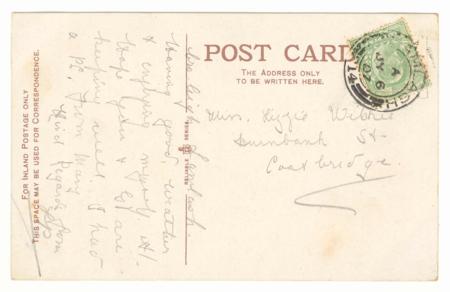 FOR INLAND POSTAGE ONLY
THIS SPACE MAY BE USED FOR CORRESPONDENCE.
Lamlash.
Having good weather
& enjoying myself A1
Hope you & are
keeping well. I had
a P.C. from Mary
Kind Regards from
RELIABLE SERIES.
POST CARD
THE ADDRESS ONLY
TO BE WRITTEN HERE.
LAMLASH
A
JY 6
07
14
Miss. Lizzie
Dunbank St.
Coatbridge.